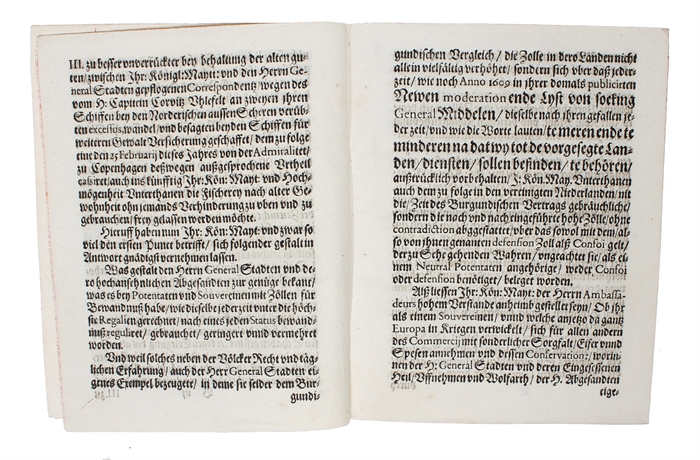 III. zu besser vnverrückter bey behaltung der alten gu-
ten/zwischen Ihr: Königl: Mayt: vnd den Herrn Ge-
neral Stadten gepflogenen Correspondentz/ wegen des
vom H: Capitein Corvitz Vhlefelt an zweyen jhren
Schiffen bey den Norderischen aussen Scheren verüb-
ten excessus, wandel/ vnd besagten beyden Schiffen für
weiteren Gewalt Versicherung geschaffet/ dem zu folge
eine den 25 Februarij dieses Jahres von der Admiralitet/
zu Copenhagen deßwegen außgesprochene Vrtheil
caßiret/ auch ins künfftig Ihr: Kön: Mayt: vnd Hoch-
mögenheit Vnterthanen die Fischerey nach alter Ge-
wohnheit ohn jemands Verhinderung zu vben vnd zu
gebrauchen/ frey gelassen werden möchte.
Hierauff haben nun Ihr: Kön: Mayt: vnd zwar so
viel den ersten Punct betrifft/ sich folgender gestalt in
Antwort gnädigst vernehmen lassen.
Was gestalt den Herrn General Stadten vnd de-
ro hochansehnlichen Abgesandten zur genüge bekant/
was es bey Potentaten vnd Souvereinen mit Zöllen für
Bewandnuß habe/ wie dieselbe jederzeit vnter die höch-
ste Regalien gerechnet/ nach eines jeden Status bewand-
nuß reguliret/ gebrauchet/ geringert vnnd vermehret
worden.
Vnd weil solches neben der Völcker Recht vnd täg-
lichen Erfahrung/ auch der Herr General Stadten ei-
genes Exempel bezeuget/ in deme sie selder dem Bur-
gundi-
gundischen Vergleich/ die Zolle in dero Landen nicht
allein vielfältig verhöhet/ sondern sich vber daß jeder-
zeit/ wie noch Anno 1609 in ihrer domals publicirten
Newen moderation ende Lyst von soeking
General Middelen/ dieselbe nach ihren gefallen je-
der zeit/ vnd wie die Worte lauten/ te meren ende te
minderen na dat wy tot de vorgesegte Lan-
den/ diensten/ sollen befinden/ te behören/
außtrücklich vorbehalten/ J: Kön. May. Vnterthanen
auch dem zu folge in den vereinigten Niederlanden/ nit
die/ Zeit des Burgundischen Vertrags gebräuchliche/
sondern die nach vnd nach eingeführte hohe Zölle/ ohne
contradiction abggestattet/ vber das sowol mit dem/ al-
so von jhnen genanten defension Zoll alß Consoi gelt/
der zu Sehe gehenden Wahren/ vngeachtet sie/ als ei-
nem Neutral Potentaten angehörige/ weder Consoi
oder defension benötiget/ beleget worden.
Alß liessen Ihr: Kön: Mayt: der Herrn Ambassa-
deurs hohem Verstande anheimb gestellet seyn/ Ob ihr
als einem Souvereinen/ vnnd welche anjetzo da gantz
Europa in Kriegen verwickelt/ sich für allen andern
des Commercij mit sonderlicher Sorgfalt/ Eiser vnnd
Spesen annehmen vnd dessen Conservation:/ worin-
nen der H: General Stadten vnd deren Eingesessenen
Heil/ Vffnehmen vnd Wolfarth/ der H. Abgesandten
eige-